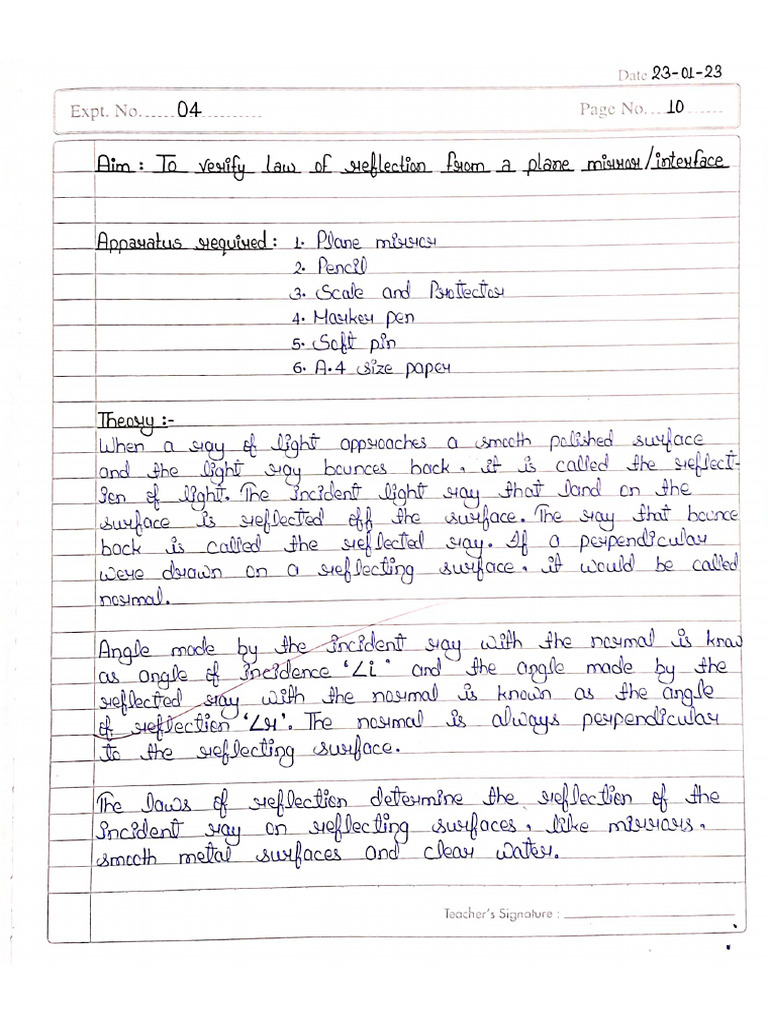 Date 23-01-23
Expt. No......04..........
Page No....10......
Aim : To verify law of reflection from a plane mirror/interface
Apparatus required : 1. Plane mirror
2. Pencil
3. Scale and Protector
4. Marker pen
5. Soft pin
6. A.4 size paper
Theory :-
When a ray of light approaches a smooth polished surface
and the light ray bounces back, it is called the reflect-
ion of light. The incident light ray that land on the
surface is reflected off the surface. The ray that bounce
back is called the reflected ray. If a perpendicular
were drawn on a reflecting surface, it would be called
normal.
Angle made by the incident ray with the normal is know
as angle of incidence '∠i' and the angle made by the
reflected ray with the normal is known as the angle
of reflection '∠r'. The normal is always perpendicular
to the reflecting surface.
The laws of reflection determine the reflection of the
incident ray on reflecting surfaces, like mirrors,
smooth metal surfaces and clear water.
Teacher's Signature : ____________________